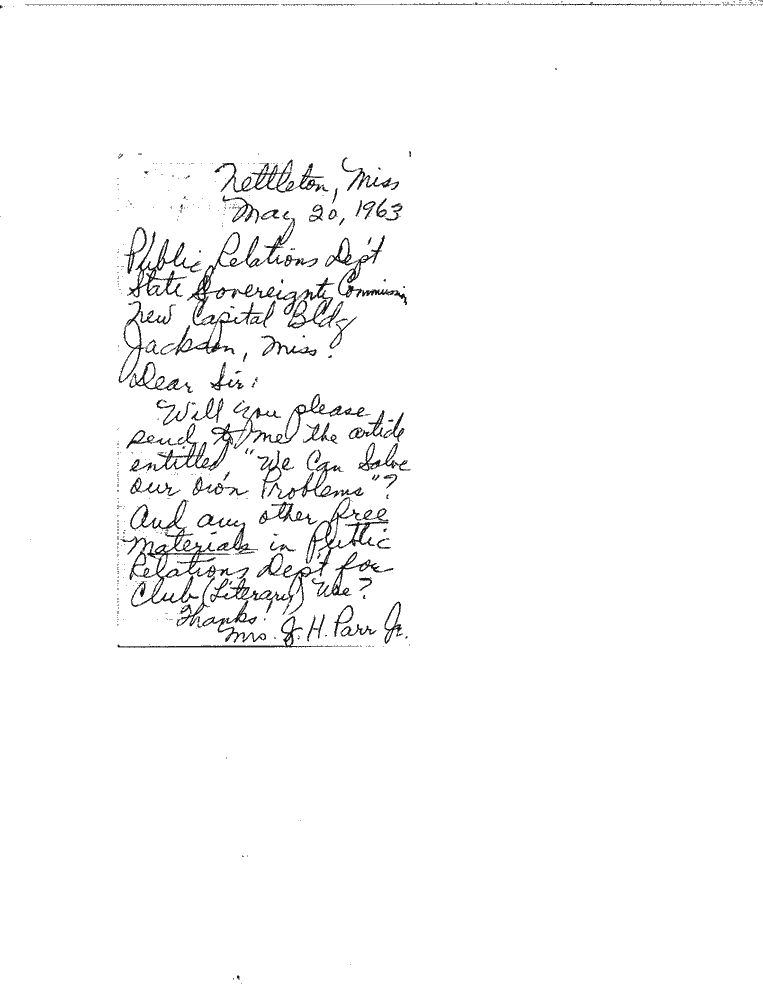 Nettleton, Miss
May 20, 1963
Public Relations Dep't
State Sovereignty Commission
New Capital Bldg
Jackson, Miss.
Dear Sir:
Will you please
send to me the article
entitled, "We Can Solve
our own Problems"?
And any other free
materials in Public
Relations Dep't for
Club (Literary) Use?
Thanks.
Mrs. J. H. Parr Jr.